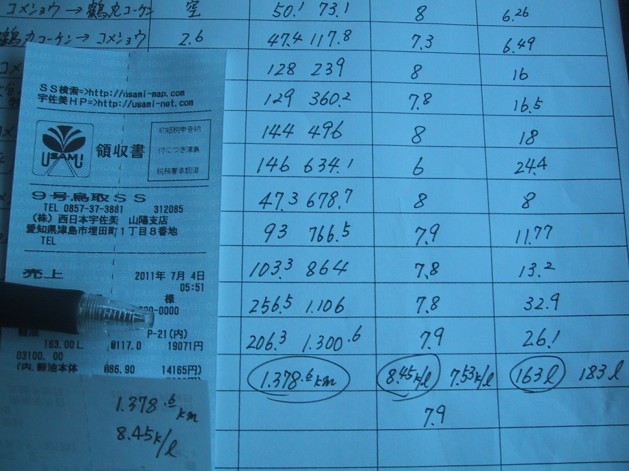 コメショウ→鶴丸コーケン 空 50.1 73.1 8 6.26
鶴丸コーケン→コメショウ 2.6 47.4 117.8 7.3 6.49
128 239 8 16
129 360.2 7.8 16.5
144 496 8 18
146 634.1 6 24.4
47.3 678.7 8 8
93 766.5 7.9 11.77
103.3 864 7.8 13.2
256.5 1.106 7.8 32.9
206.3 1.300.6 7.9 26.1
1.378.6km 8.45k/l 7.53k/l 163l 183l
7.9
SS検索=>http://usami-map.com
宇佐美HP=>http://usami-net.com
USAMI
領収書
印紙税申告納
付につき津島
税務署承認済
9号鳥取SS
TEL 0857-37-3881 312085
(株) 西日本宇佐美 山陽支店
愛知県津島市埋田町1丁目8番地
TEL
売上 2011年 7月 4日
05:51
様
000-0000
P-21(内)
軽油
183.00L @117.0 19071円
03100.00
(内,軽油本体 @86.90 14165円
1.378.6km
8.45k/l